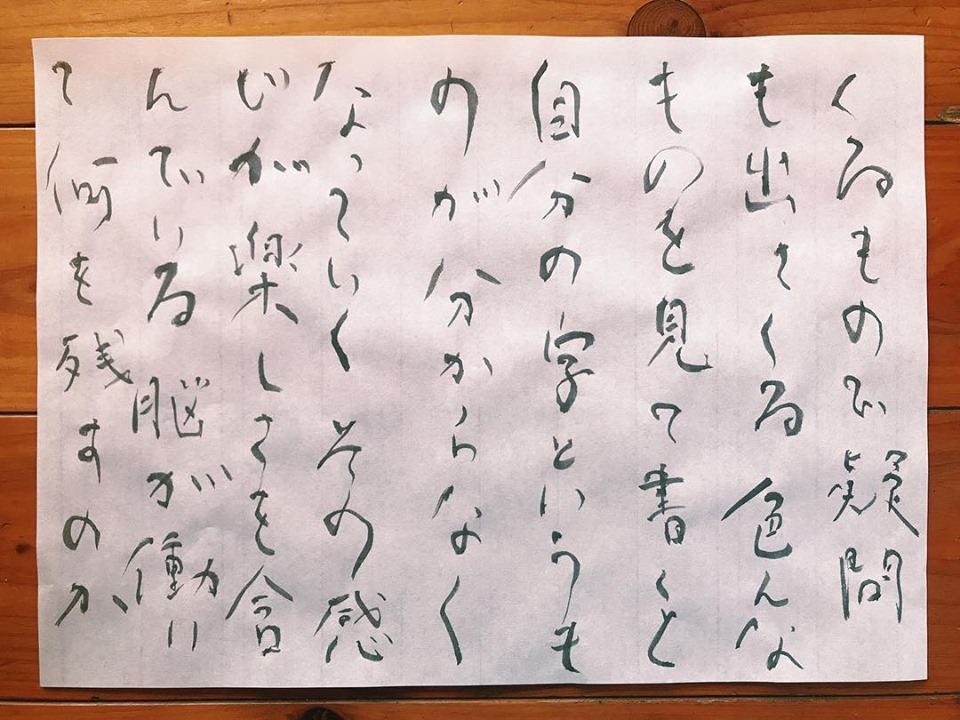 くるもので疑問
も出てくる色んな
ものを見て書くと
自分の字というも
のが分からなく
なっていくその感
じが楽しさを含
んでいる脳が働い
て何を残すのか